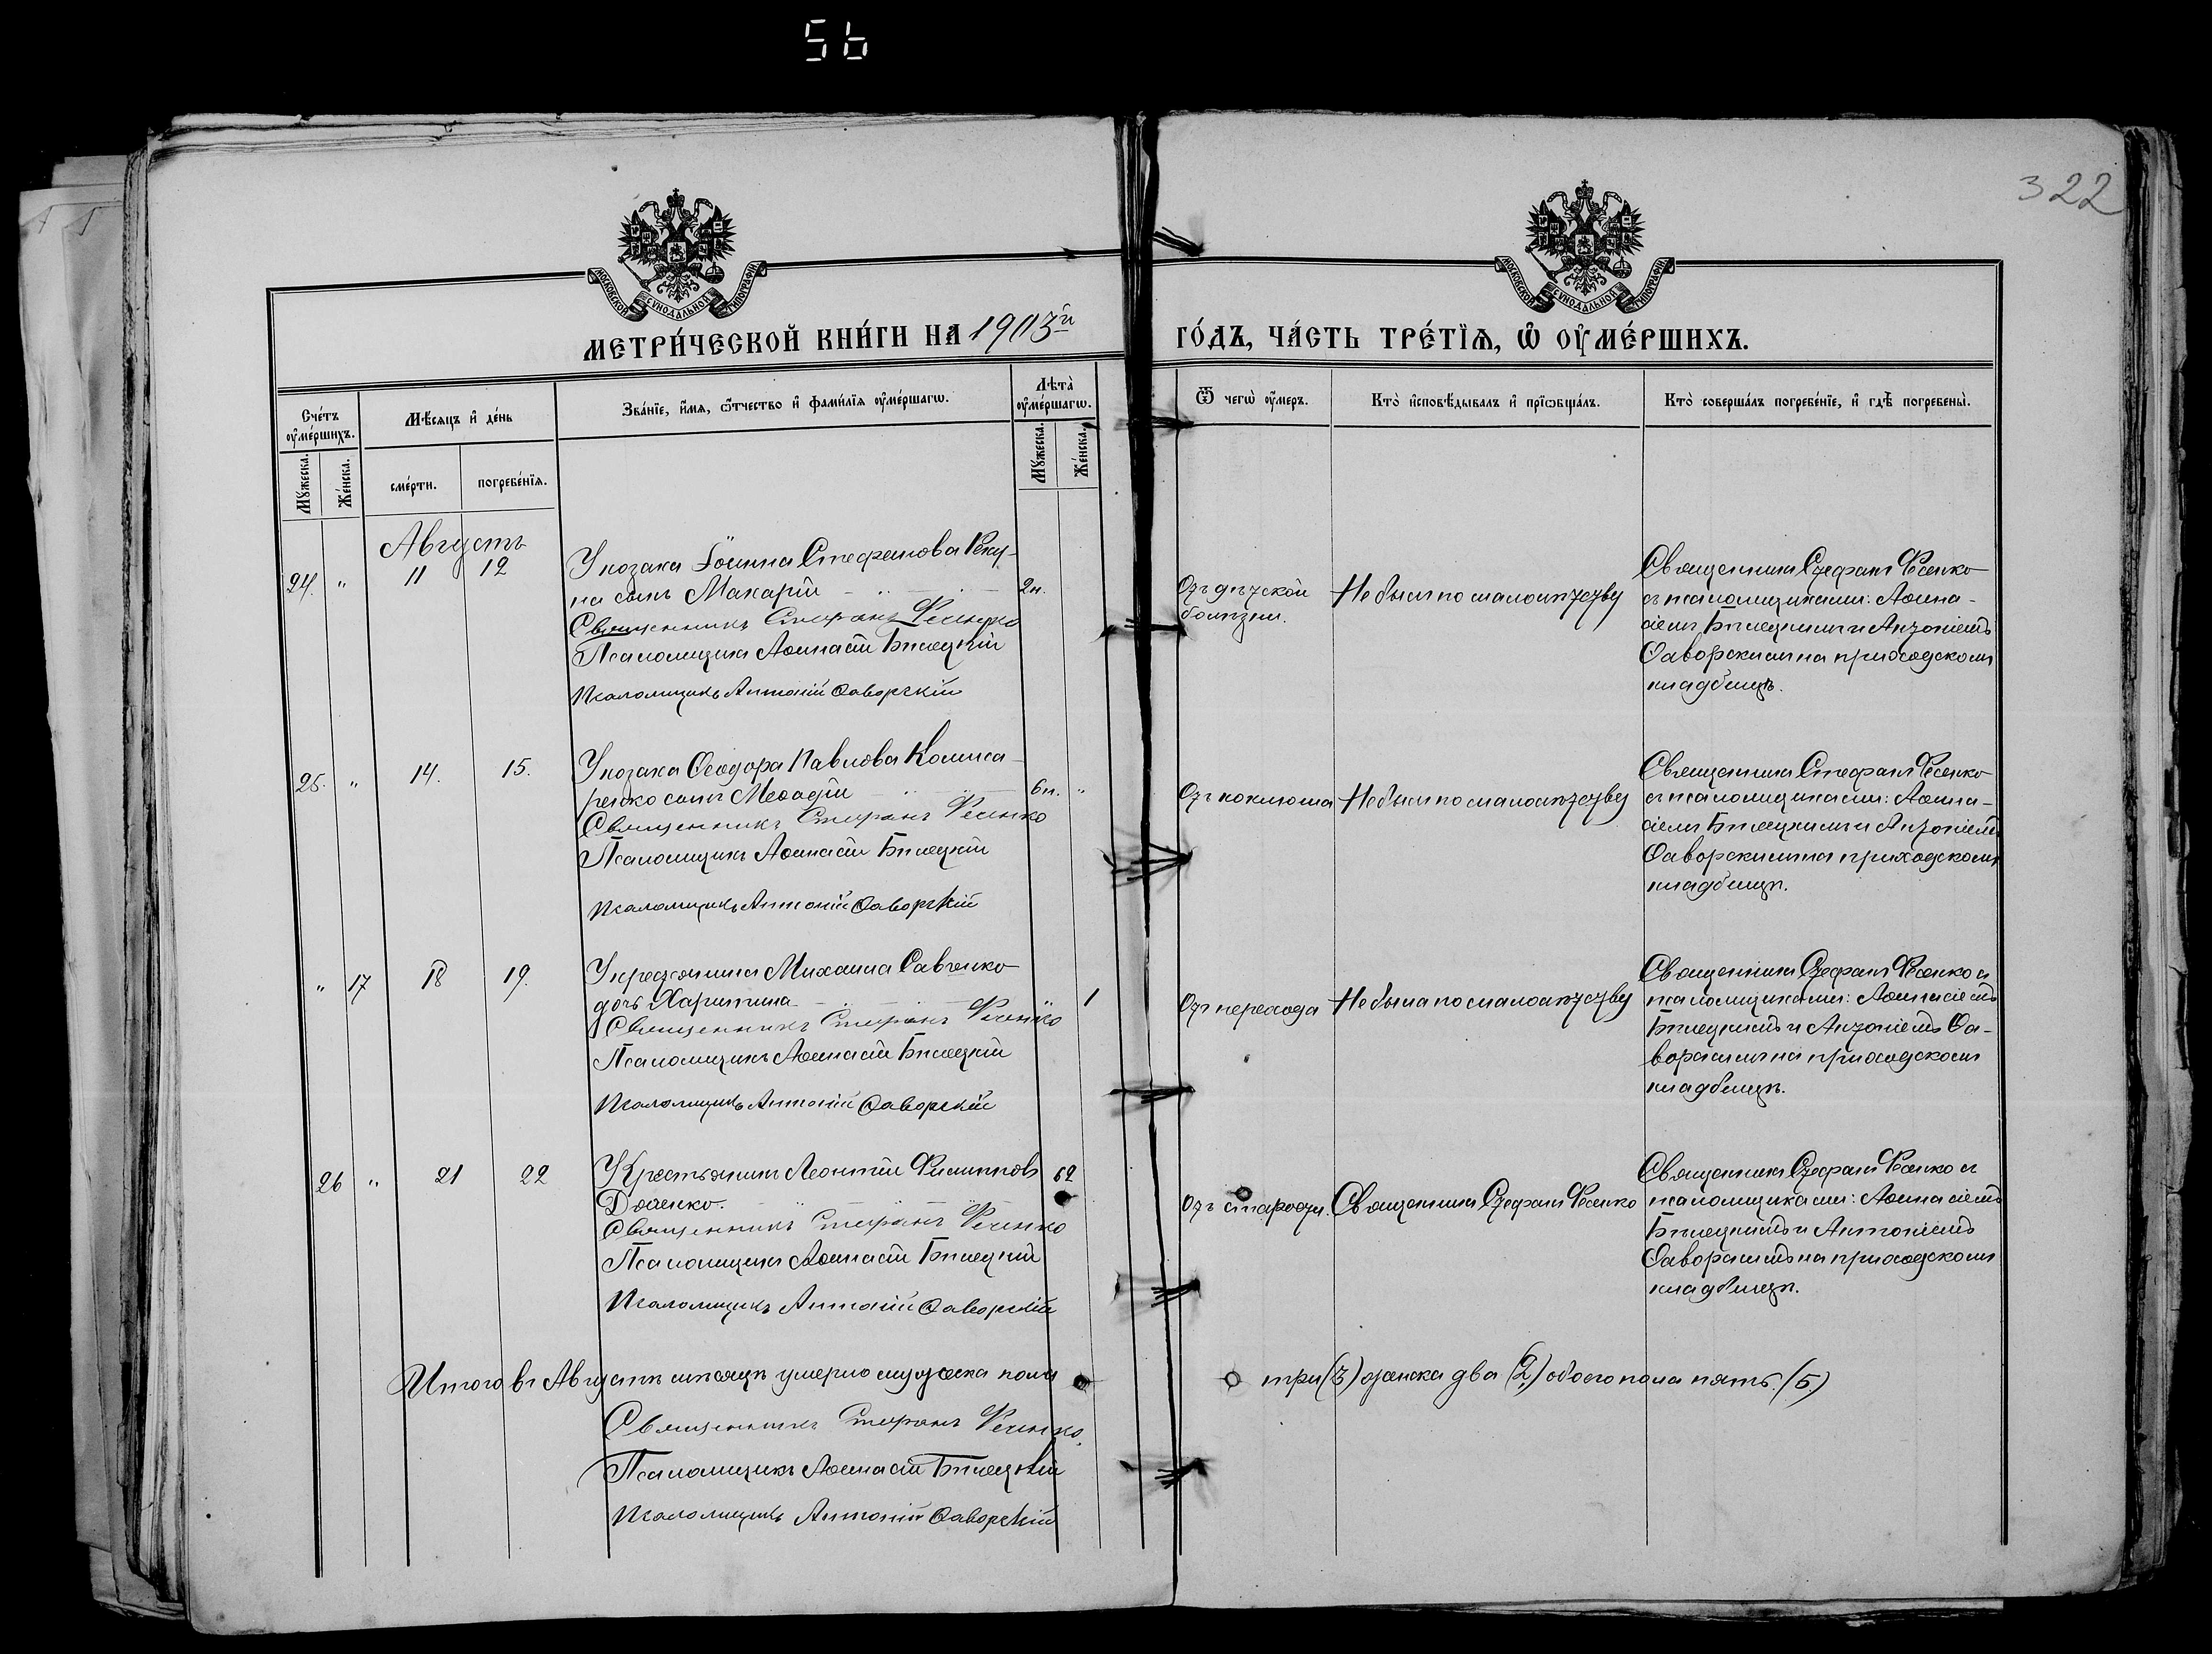 56
322
МОСКОВСКОЙ СѴНОДАЛЬНОЙ ТИПОГРАФІИ
МОСКОВСКОЙ СѴНОДАЛЬНОЙ ТИПОГРАФІИ
МЕТРИ́ЧЕСКОЙ КНИ́ГИ НА 1903й ГО́ДЪ, ЧА́СТЬ ТРЕ́ТЇѦ, Ѡ҆ ОУ҆МЕ́РШИХЪ.
Сче́тъ оу҆ме́ршихъ.
Мꙋ́жеска.
Же́нска.
Мѣ́сяцъ и҆ де́нь
сме́рти.
погребе́нїѧ.
Зва́нїе, и҆́мѧ, ѻ҆́тчество и҆ фами́лїѧ оу҆ме́ршагѡ.
Лѣ́та оу҆ме́ршагѡ.
Мꙋ́жеска.
Же́нска.
Ѿ чегѡ̀ оу҆́меръ.
Кто̀ и҆сповѣ́дывалъ и҆ прїѡбща́лъ.
Кто̀ соверша́лъ погребе́нїе, и҆ гдѣ̀ погребены̀.
Августъ
24. " 11 12
У козака Іоанна Стефанова Реку-
на сынъ Макарій 2н.
Священникъ Стефанъ Фесенко
Псаломщикъ Аѳанасій Бѣлецкій
Псаломщикъ Антоній Ѳаворскій
Отъ дѣтской
болѣзни.
Не былъ по малолѣтству
Священникъ Стефанъ Фесенко
съ псаломщиками: Аѳана-
сіемъ Бѣлецкимъ и Антоніемъ
Ѳаворскимъ на приходскомъ
кладбищѣ.
25. " 14. 15.
У козака Ѳеодора Павлова Комиса-
ренко сынъ Меѳодій 6н. "
Священникъ Стефанъ Фесенко
Псаломщикъ Аѳанасій Бѣлецкій
Псаломщикъ Антоній Ѳаворскій
Отъ коклюша
Не былъ по малолѣтству
Священникъ Стефанъ Фесенко
съ псаломщиками: Аѳана-
сіемъ Бѣлецкимъ и Антоніемъ
Ѳаворскимъ на приходскомъ
кладбищѣ.
" 17 18 19.
У крестьянина Михаила Савченко
дочь Харитина " 1
Священникъ Стефанъ Фесенко
Псаломщикъ Аѳанасій Бѣлецкій
Псаломщикъ Антоній Ѳаворскій
Отъ перехода
Не была по малолѣтству
Священникъ Стефанъ Фесенко съ
псаломщиками: Аѳанасіемъ
Бѣлецкимъ и Антоніемъ Ѳа-
ворскимъ на приходскомъ
кладбищѣ.
26 " 21 22
Крестьянинъ Леонтій Филипповъ 62
Доценко.
Священникъ Стефанъ Фесенко
Псаломщикъ Аѳанасій Бѣлецкій
Псаломщикъ Антоній Ѳаворскій
Отъ старости.
Священникъ Стефанъ Фесенко
Священникъ Стефанъ Фесенко съ
псаломщиками: Аѳанасіемъ
Бѣлецкимъ и Антоніемъ
Ѳаворскимъ на приходскомъ
кладбищѣ.
Итого въ Августѣ мѣсяцѣ умерло мужеска пола три (3) женска два (2) обоего пола пять. (5.)
Священникъ Стефанъ Фесенко.
Псаломщикъ Аѳанасій Бѣлецкій
Псаломщикъ Антоній Ѳаворскій